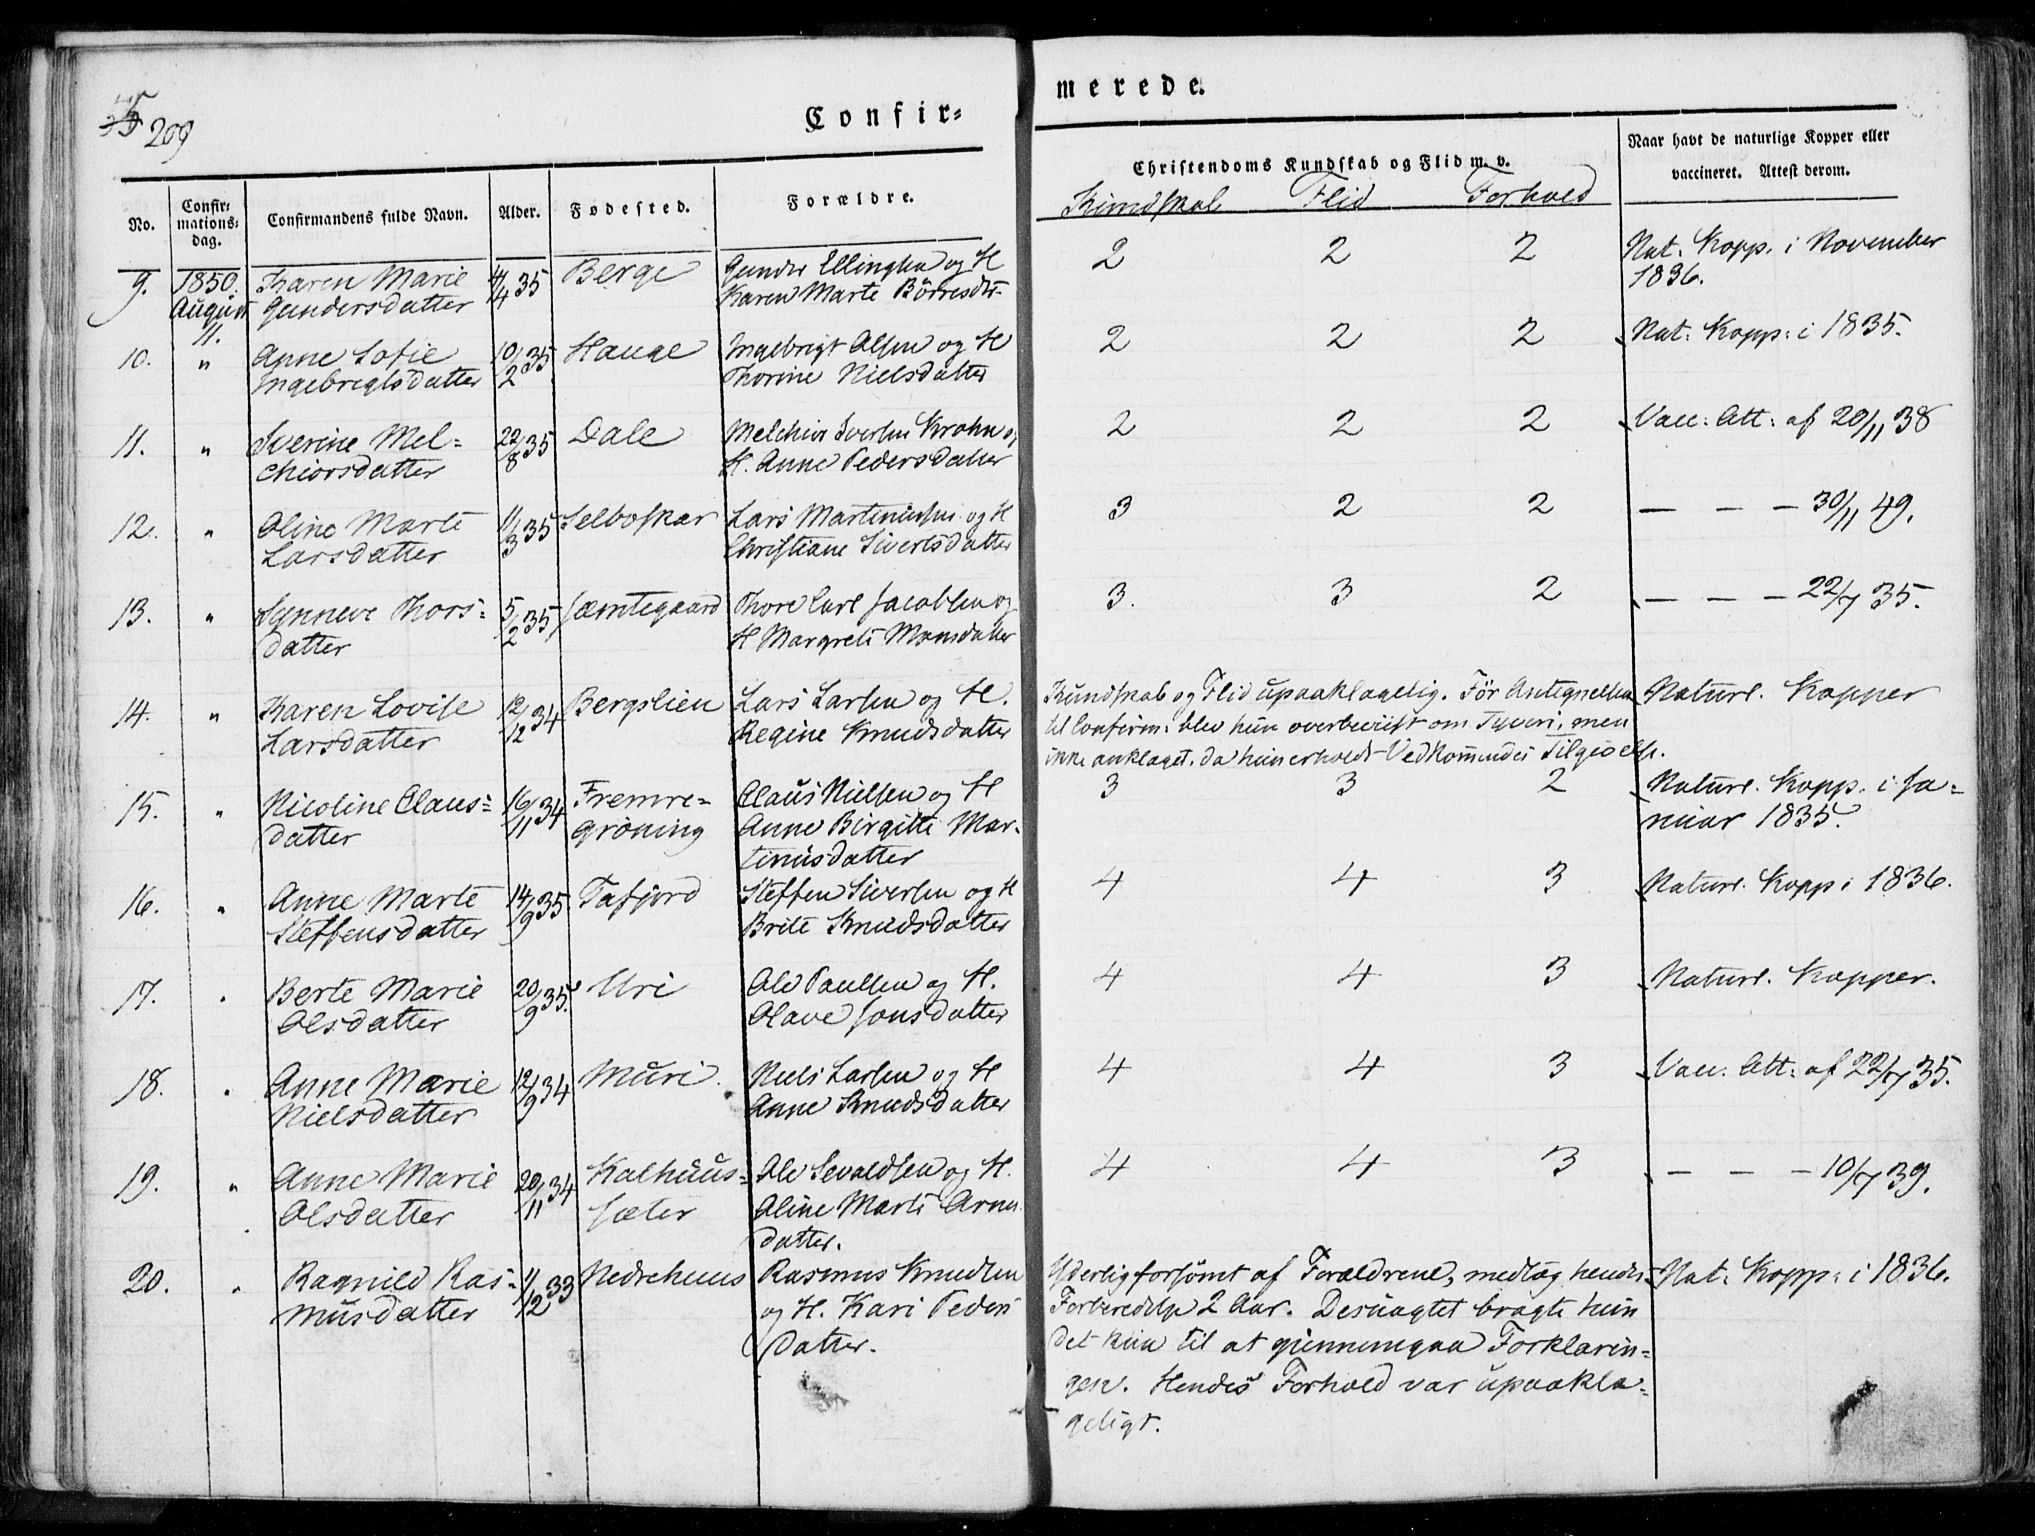 209
Confir=
merede.
No.
Confir=
mations=
dag.
Confirmandens fulde Navn.
Alder.
Fødested.
Forældre.
Christendoms Kundskab og Flid m. v.
Kundskab Flid Forhold
Naar havt de naturlige Kopper eller
vaccineret. Attest derom.
9. 1850. Karen Marie 4/4 35 Berge Gunder Ellingsen og H 2 2 2 Nat. Kopp. i November
August Gundersdatter Karen Marte Börresdtr 1836.
11.
10. " Anne Sofie 10/2 35 Hauge Ingebrigt Olsen og H 2 2 2 Nat. Kopp: i 1835.
Ingebrigtsdatter Thorine Nielsdatter
11. " Iverine Mel= 22/8 35 Dale Melchior Iversen Krohn og 2 2 2 Vacc: Att: af 20/11 38
chiorsdatter H. Anne Pedersdatter
12. " Oline Marte 11/3 35 Selboskar Lars Martinussen og H 3 2 2 — — — 30/11 49.
Larsdatter Christiane Sivertsdatter
13. " Synneve Thors= 5/2 35 Jæmtegaard Thore Carl Jacobsen og 3. 3 2 — — — 22/7 35.
datter H Margrete Monsdatter
14. " Karen Lovise 12/12 34 Bergslien Lars Larsen og H. Kundskab og Flid upaaklagelig. För Antegnelsen Naturl. Kopper
Larsdatter Regine Knudsdatter til Confirm: blev hun overbeviist om Tyveri, men
ikke anklaget, da hun erholdt Vedkommendes Tilgivelse.
15. " Nicoline Claus= 16/11 34 Fremre= Claus Nielsen og H 3 3 2 Naturl. Kopp. i Ja=
datter gröning Anne Birgitte Mar= nuar 1835.
tinusdatter
16. " Anne Marte 14/9 35 Tafjord Steffen Sivertsen og H 4 4 3 Naturl. Kopp i 1836.
Steffensdatter Brite Knudsdatter
17. " Berte Marie 20/9 35. Uri Ole Paulsen og H. 4 4 3 Naturl. Kopper.
Olsdatter Olave Jonsdatter
18. " Anne Marie 12/9 34 Muri. Niels Larsen og H 4 4 3 Vacc. Att: af 22/7 35.
Nielsdatter Anne Knudsdatter
19. " Anne Marie 20/11 34 Kalhuus= Ole Sevaldsen og H. 4 4 3 — — — 10/7 39.
Olsdatter sæter Oline Marte Arne
datter.
20. " Ragnild Ras= 1/12 33 Nedrehuus Rasmus Knudsen Yderlig forsömt af Forældrene, medtog hendes Nat: Kopp: i 1836.
musdatter og H. Kari Peders Forberedelse 2 Aar. Desuagtet bragte hun
datter. det kun til at gjennemgaa Forklarin=
gen. Hendes Forhold var upaakla=
geligt.